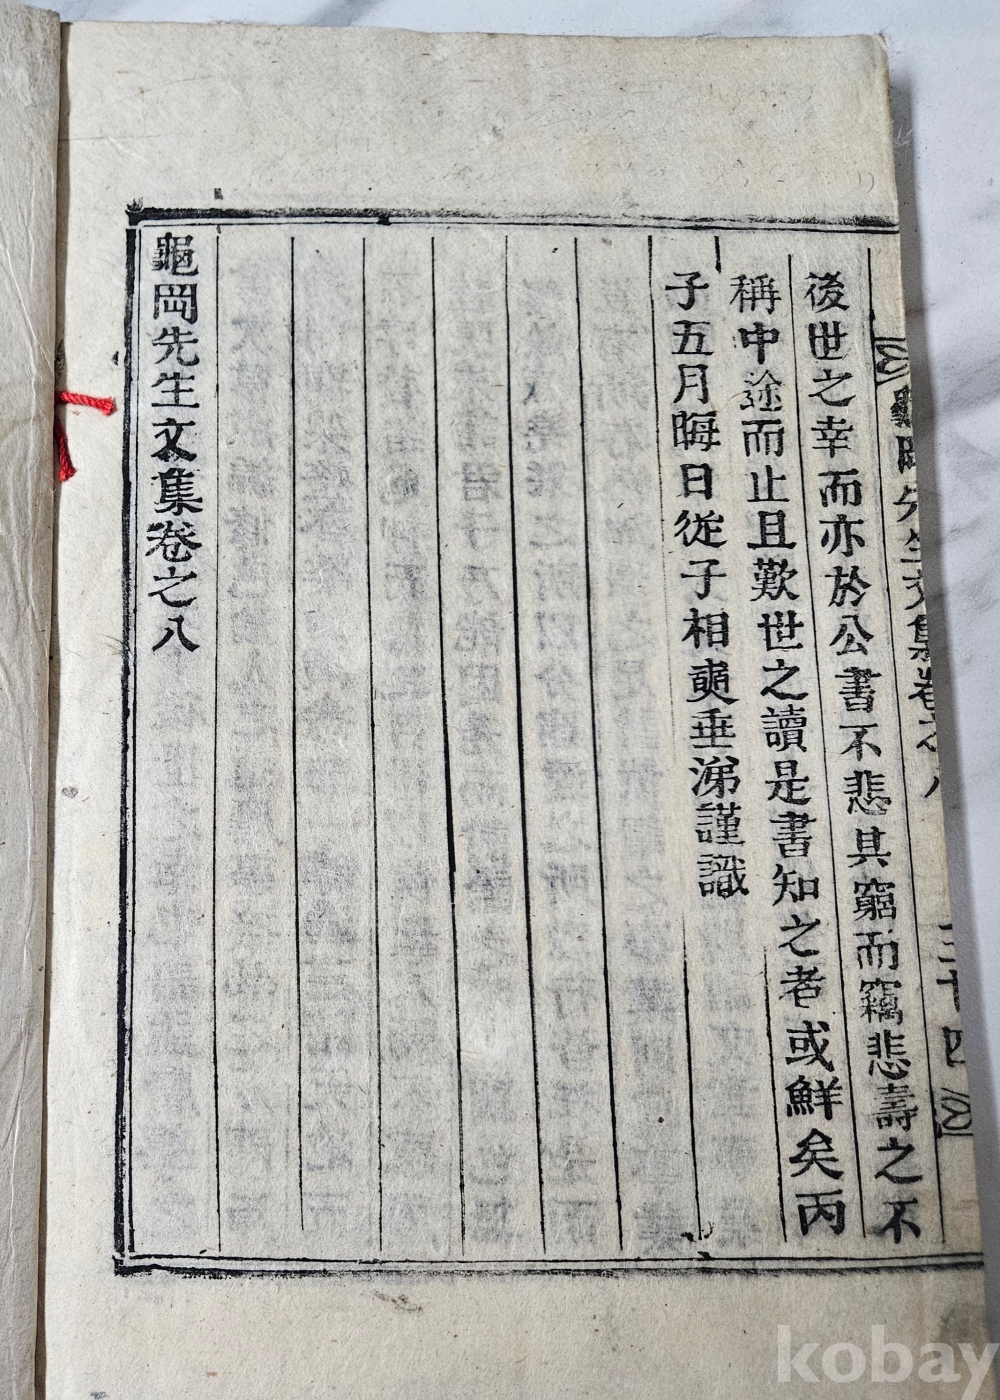 龜岡先生文集卷之八
三十四
後世之幸而亦於公書不悲其窮而竊悲壽之不
稱中途而止且歎世之讀是書知之者或鮮矣丙
子五月晦日從子相奭垂涕謹識
龜岡先生文集卷之八
kobay